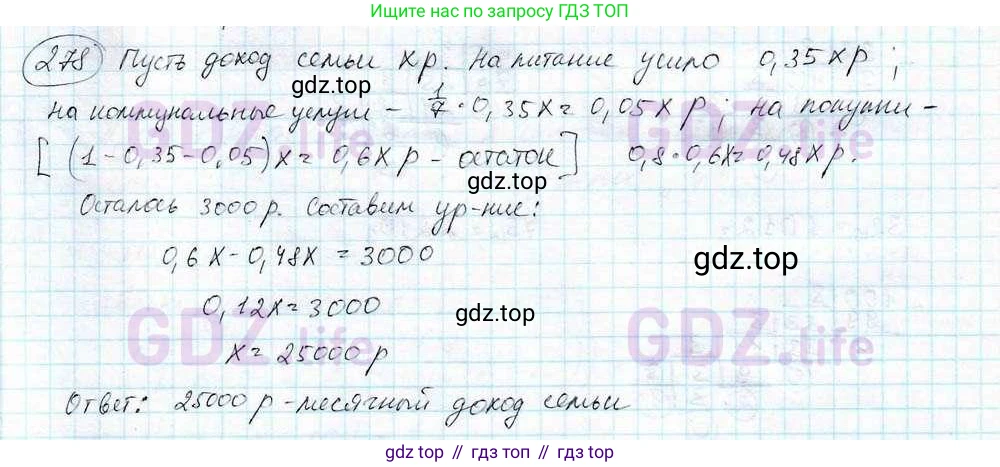 Ищите по запросу ГДЗ ТОП
278 Пусть доход семьи x р. На питание ушло 0,35x р ;
gdz.top
на коммунальные услуги – 1/7 · 0,35x = 0,05x р ; на покупки –
[ (1 – 0,35 – 0,05)x = 0,6x р – остаток ] 0,8 · 0,6x = 0,48x р.
gdz.top
Осталось 3000 р. Составим ур-ние:
0,6x – 0,48x = 3000
gdz.top
0,12x = 3000
gdz.top
GDZ.life
GDZ.life
x = 25000 р
Ответ: 25000 р – месячный доход семьи
gdz.top // гдз.топ // gdz.top // гдз.топ